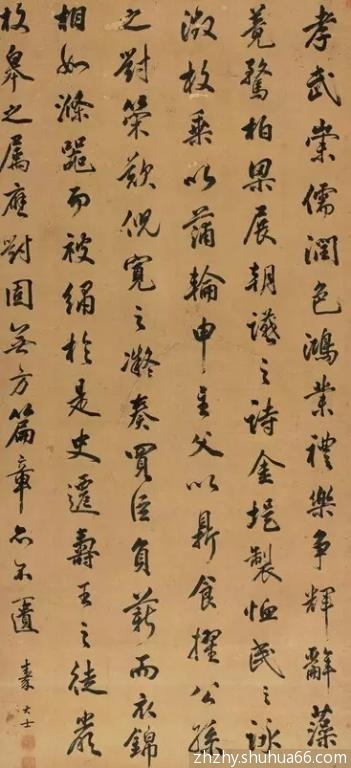 孝武崇儒潤色鴻業禮樂爭輝辭藻
競騖柏梁展朝讌之詩金堤製恤民之詠
徵枚乘以蒲輪申主父以鼎食擢公孫
之對策歎倪寬之擬奏買臣負薪而衣錦
相如滌器而被繡於是史遷壽王之徒嚴
枚皋之屬應對固無方篇章亦不匱
秦大士
zhzhy.shuhua66.com